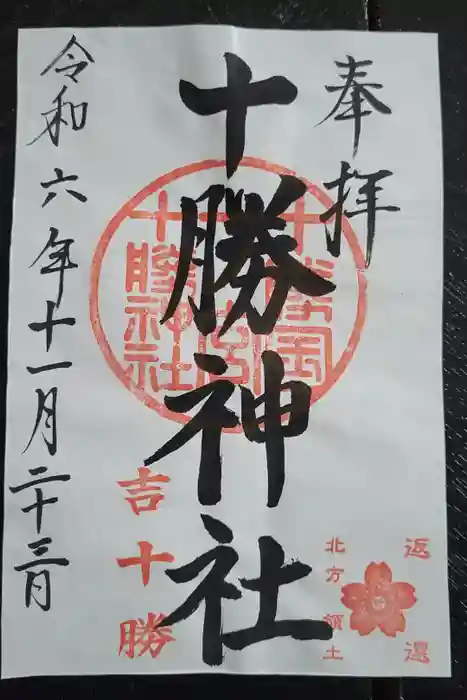 奉拝
十勝神社
十勝國
一宮
十勝神社
吉十勝
北方領土
返還
令和六年十一月二十三日